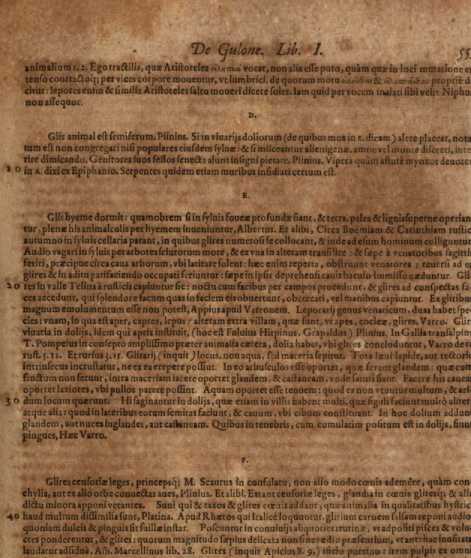 De Gulone. Lib. I. 55
animalium 1. 2. Ego tractilis, quæ Aristoteles vocat, non alia esse puto, quàm quæ in loci mutatione
tenso contractoq; per vices corpore mouentur, vt lumbrici. de quorum motu
lepores enim & similia Aristoteles saltu moueri dicere solet. Iam quid per vocem inalati sibi velit Niphus
non assequor.
D.
Glis animal est semiferum. Plinius. Si in viuarijs doliorum (de quibus mox in E. dicam) alere placeat,
tum est non congregari nisi populares eiusdem syluæ: & si misceantur alienigenæ, amne vel monte discreti,
rire dimicando. Genitores suos fessos senecta alunt insigni pietate. Plinius. Vipera quàm astutè myoxos
20 in A. dixi ex Epiphanio. Serpentes quidem etiam muribus insidiari certum est.
E.
Glis hyeme dormit: quamobrem si in syluis foueæ profundæ fiant, & terra, paleis & lignis superne
tur, plenæ his animalcolis per hyemem inueniuntur, Albertus. Et alibi, Circa Boemiam & Carinthiam rustici
autumno in syluis cellaria parant, in quibus glires numerosi se collocant, & inde ad esum hominum colliguntur.
Audio vagari in syluis per arbores sciurorum more, & ex vna in alteram transilire: & sæpe à venatoribus sagittis
feriri, præcipuè circa caua arborum, vbi latitare solent: hæc enim reperta, obstruunt venatores: reuersi
glires & in aditu patefaciendo occupati feriuntur: sæpe in ipsis deprehensi cauis baculo immisso eduntur.
20 res in valle Telina à rusticis capiuntur sic: noctu cum facibus per campos procedunt, & glires ad conspectas
ces accedunt, qui splendore facum quas in faciem eis obuertunt, obcæcari, vel manibus capiuntur. Ex gliribus
magnum emolumentum esse non potest, Appius apud Varronem. Leporarij genus venaticum, duas habet
cies: vnam, in qua est aper, caprea, lepus: alteram extra villam, quæ sunt, vt apes, cochleæ, glires. Varro.
viuaria in dolijs, idem qui apris instituit, (hoc est Fuluius Hirpinus, Grapaldus) Plinius. In Gallia transalpina
T. Pompeius in consepto amplissimo præter animalia cætera, dolia habet, vbi glires concluduntur, Varro de
rust. 3. 12. Et rursus 3. 15. Glirarij (inquit) locus, non aqua, sed maceria sepitur. Tota læui lapide, aut tectorio
intrinsecus incrustatur, ne ex ea erepere possint. In eo arbusculas esse oportet, quæ ferant glandem: quæ cum
fructum non ferunt, intra maceriam iacere oportet glandem, & castaneam, vnde saturi fiant. Facere his cauos
oportet laxiores, vbi pullos parere possint. Aquam oportet esse tenuem: quod ea non vtuntur multum,
30 dum locum quærunt. Hi saginantur in dolijs, quæ etiam in villis habent multi. quæ figuli faciunt multò aliter
atque alia: quod in lateribus eorum semitas faciunt, & cauum, vbi cibum constituant. In hoc dolium addunt
glandem, aut nuces iuglandes, aut castaneam. Quibus in tenebris, cum cumulatim positum est in dolijs, fiunt
pingues, Hæc Varro.
F.
Glires censoriæ leges, princepsq; M. Scaurus in consulatu, non alio modo cœnis ademêre, quàm
chylia, aut ex alio orbe conuectas aues, Plinius. Et alibi. Extant censoriæ leges, glandia in cœnis gliresq; & alia
dictu minora apponi vetantes. Suni qui & taxos & glires cœnis addant, quæ animalia in qualitatibus hystrici
40 haud multum dissimilia sunt, Platina. Apud Rhætos qui Italicè loquuntur, glirium carnem suillam esse ponunt
quoniam dulcis & pinguis sit suillæ instar. Poscuntur in conuiuijs aliquoties trutinæ, vt adpositi pisces &
ctes ponderentur, & glires: quorum magnitudo sæpius delicata non sine tædio præsentium, vt antehac inusitata
laudatur assiduè. Am. Marcellinus lib. 28. Glires (inquit Apicius 8. 9.) isicio porcino, item pulpis ex